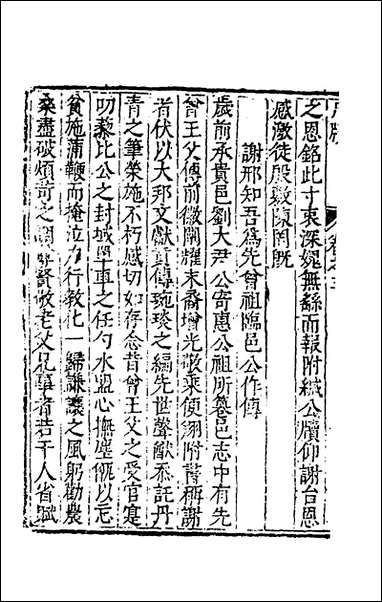 之恩銘此寸衷深媿無繇而報附緘公牘仰謝台恩
感激徒殷敷陳罔既
謝邢知吾爲先曾祖臨邑公作傳
歲前承貴邑劉大尹公寄惠公祖所纂邑志中有先
曾王父傳前徽闡耀末裔增光敬乘便翊附謦稱謝
者伏以大邦文獻寔傳琬琰之編先世聲猷忝託丹
青之筆榮施不朽感切如存念昔曾王父之受官寔
叨黎比公之封域四十重之任勺水盟心撫塵甑以忘
貧施蒲鞭而掩泣力行敎化一歸謙讓之風躬勸農
桑盡破煩苛之 賢敬老父兄事者若干人省賦